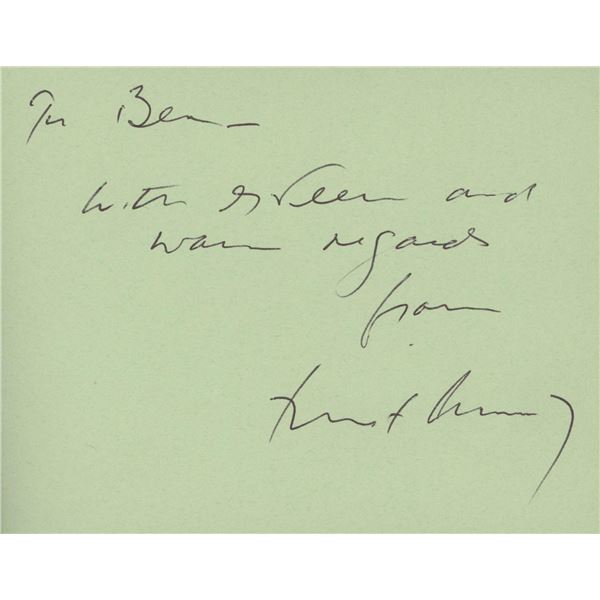 To Ben –
with esteem and
warm regards
from